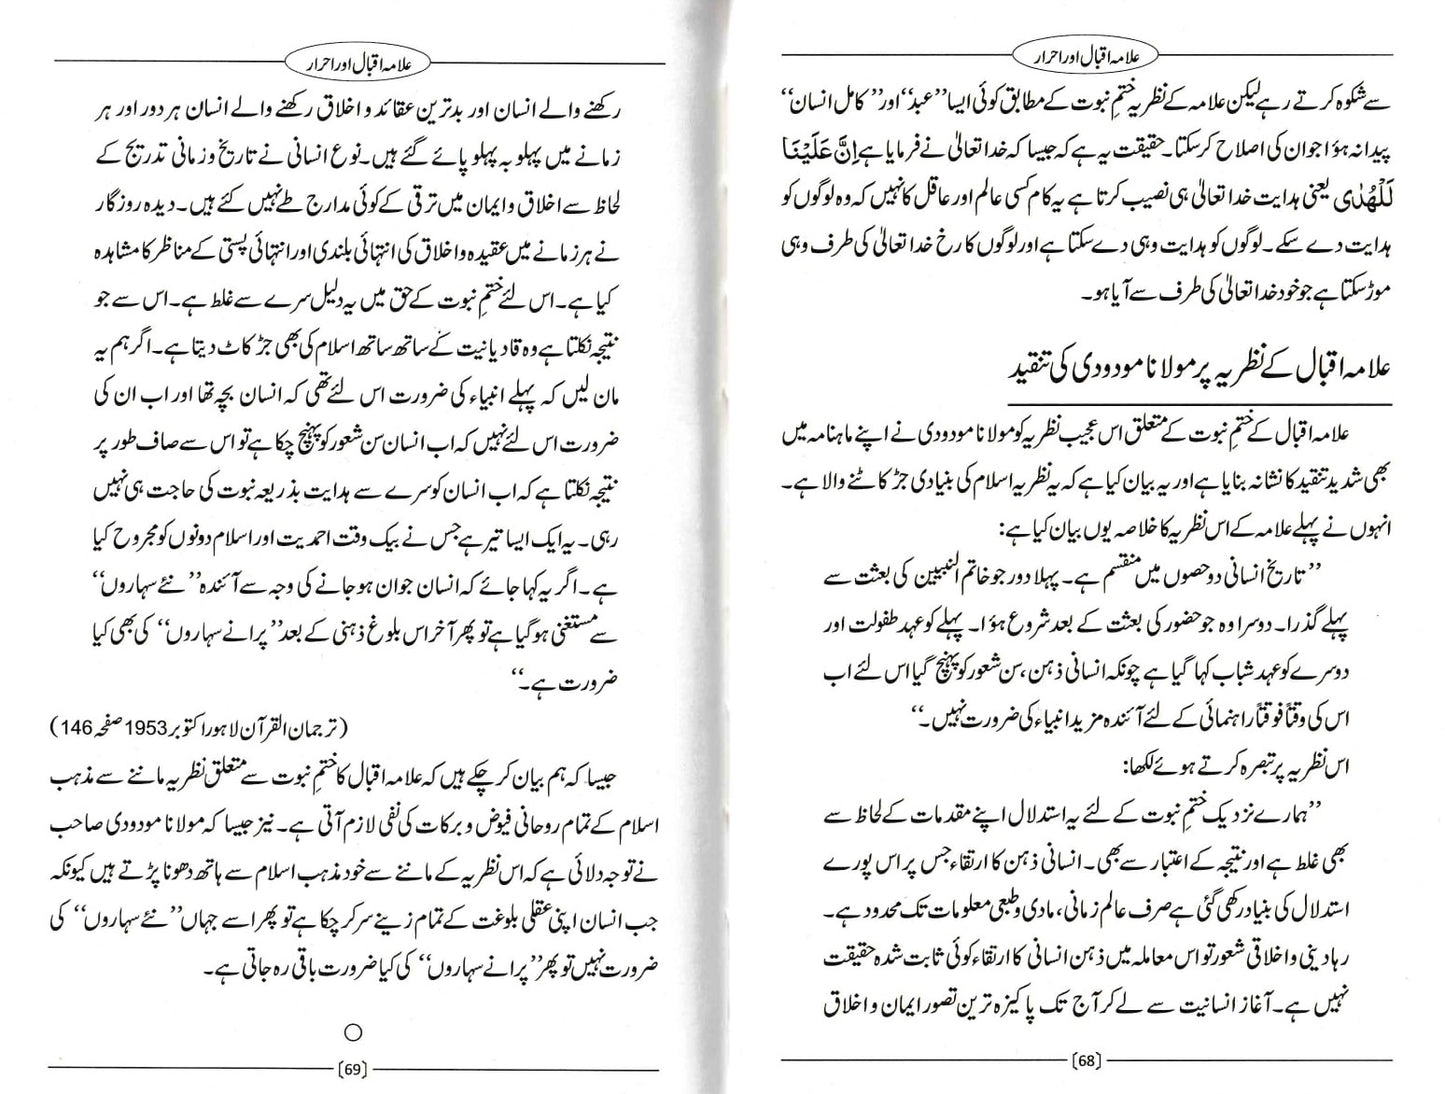 علامہ اقبال اور احرار
سے شکوہ کرتے رہے لیکن علامہ کے نظریہ ختمِ نبوت کے مطابق کوئی ایسا ’’عبد‘‘ اور ’’کامل انسان‘‘
پیدا نہ ہؤا جو ان کی اصلاح کرسکتا۔ حقیقت یہ ہے کہ جیسا کہ خدا تعالیٰ نے فرمایا ہے اِنَّ عَلَیْنَا
لَلْھُدٰی یعنی ہدایت خدا تعالیٰ ہی نصیب کرتا ہے یہ کام کسی عالم اور عاقل کا نہیں کہ وہ لوگوں کو
ہدایت دے سکے۔ لوگوں کو ہدایت وہی دے سکتا ہے اور لوگوں کا رخ خدا تعالیٰ کی طرف وہی
موڑ سکتا ہے جو خود خدا تعالیٰ کی طرف سے آیا ہو۔
علامہ اقبال کے نظریہ پر مولانا مودودی کی تنقید
علامہ اقبال کے ختمِ نبوت کے متعلق اس عجیب نظریہ کو مولانا مودودی نے اپنے ماہنامہ میں
بھی شدید تنقید کا نشانہ بنایا ہے اور یہ بیان کیا ہے کہ یہ نظریہ اسلام کی بنیادی جڑ کاٹنے والا ہے۔
انہوں نے پہلے علامہ کے اس نظریہ کا خلاصہ یوں بیان کیا ہے:
’’تاریخ انسانی دو حصوں میں منقسم ہے۔ پہلا دور جو خاتم النبیین کی بعثت سے
پہلے گذرا۔ دوسرا وہ جو حضور کی بعثت کے بعد شروع ہؤا۔ پہلے کو عہد طفولت اور
دوسرے کو عہد شباب کہا گیا ہے چونکہ انسانی ذہن، سن شعور کو پہنچ گیا اس لئے اب
اس کی وقتاً فوقتاً راہنمائی کے لئے آئندہ مزید انبیاء کی ضرورت نہیں۔‘‘
اس نظریہ پر تبصرہ کرتے ہوئے لکھا:
’’ہمارے نزدیک ختمِ نبوت کے لئے یہ استدلال اپنے مقدمات کے لحاظ سے
بھی غلط ہے اور نتیجہ کے اعتبار سے بھی۔ انسانی ذہن کا ارتقاء جس پر اس پورے
استدلال کی بنیاد رکھی گئی ہے صرف عالم زمانی، مادی و طبعی معلومات تک محدود ہے۔
رہا دینی و اخلاقی شعور تو اس معاملہ میں ذہن انسانی کا ارتقاء کوئی ثابت شدہ حقیقت
نہیں ہے۔ آغاز انسانیت سے لے کر آج تک پاکیزہ ترین تصور ایمان و اخلاق
[68]
علامہ اقبال اور احرار
رکھنے والے انسان اور بدترین عقائد و اخلاق رکھنے والے انسان ہر دور اور ہر
زمانے میں پہلو بہ پہلو پائے گئے ہیں۔ نوع انسانی نے تاریخ و زمانی تدریج کے
لحاظ سے اخلاق و ایمان میں ترقی کے کوئی مدارج طے نہیں کئے ہیں۔ دیدہ روزگار
نے ہر زمانے میں عقیدہ و اخلاق کی انتہائی بلندی اور انتہائی پستی کے مناظر کا مشاہدہ
کیا ہے۔ اس لئے ختمِ نبوت کے حق میں یہ دلیل سرے سے غلط ہے۔ اس سے جو
نتیجہ نکلتا ہے وہ قادیانیت کے ساتھ ساتھ اسلام کی بھی جڑ کاٹ دیتا ہے۔ اگر ہم یہ
مان لیں کہ پہلے انبیاء کی ضرورت اس لئے تھی کہ انسان بچہ تھا اور اب ان کی
ضرورت اس لئے نہیں کہ اب انسان سن شعور کو پہنچ چکا ہے تو اس سے صاف طور پر
نتیجہ نکلتا ہے کہ اب انسان کو سرے سے ہدایت بذریعہ نبوت کی حاجت ہی نہیں
رہی۔ یہ ایک ایسا تیر ہے جس نے بیک وقت احمدیت اور اسلام دونوں کو مجروح کیا
ہے۔ اگر یہ کہا جائے کہ انسان جوان ہو جانے کی وجہ سے آئندہ ’’نئے سہاروں‘‘
سے مستغنی ہو گیا ہے تو پھر آخر اس بلوغ ذہنی کے بعد ’’پرانے سہاروں‘‘ کی بھی کیا
ضرورت ہے۔‘‘
(ترجمان القرآن لاہور اکتوبر 1953 صفحہ 146)
جیسا کہ ہم بیان کر چکے ہیں کہ علامہ اقبال کا ختمِ نبوت سے متعلق نظریہ ماننے سے مذہب
اسلام کے تمام روحانی فیوض و برکات کی نفی لازم آتی ہے۔ نیز جیسا کہ مولانا مودودی صاحب
نے توجہ دلائی ہے کہ اس نظریہ کے ماننے سے خود مذہب اسلام سے ہاتھ دھونا پڑتے ہیں کیونکہ
جب انسان اپنی عقلی بلوغت کے تمام زینے سر کر چکا ہے تو پھر اسے جہاں ’’نئے سہاروں‘‘ کی
ضرورت نہیں تو پھر ’’پرانے سہاروں‘‘ کی کیا ضرورت باقی رہ جاتی ہے۔
[69]